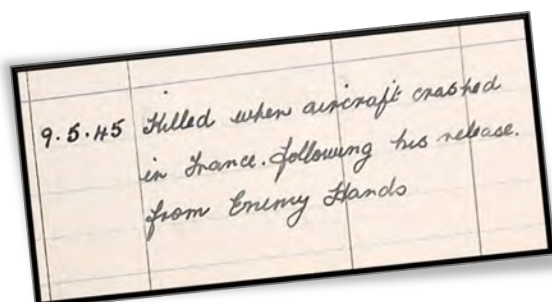 9.5.45 Killed when aircraft crashed
in France. following his release.
from Enemy Hands